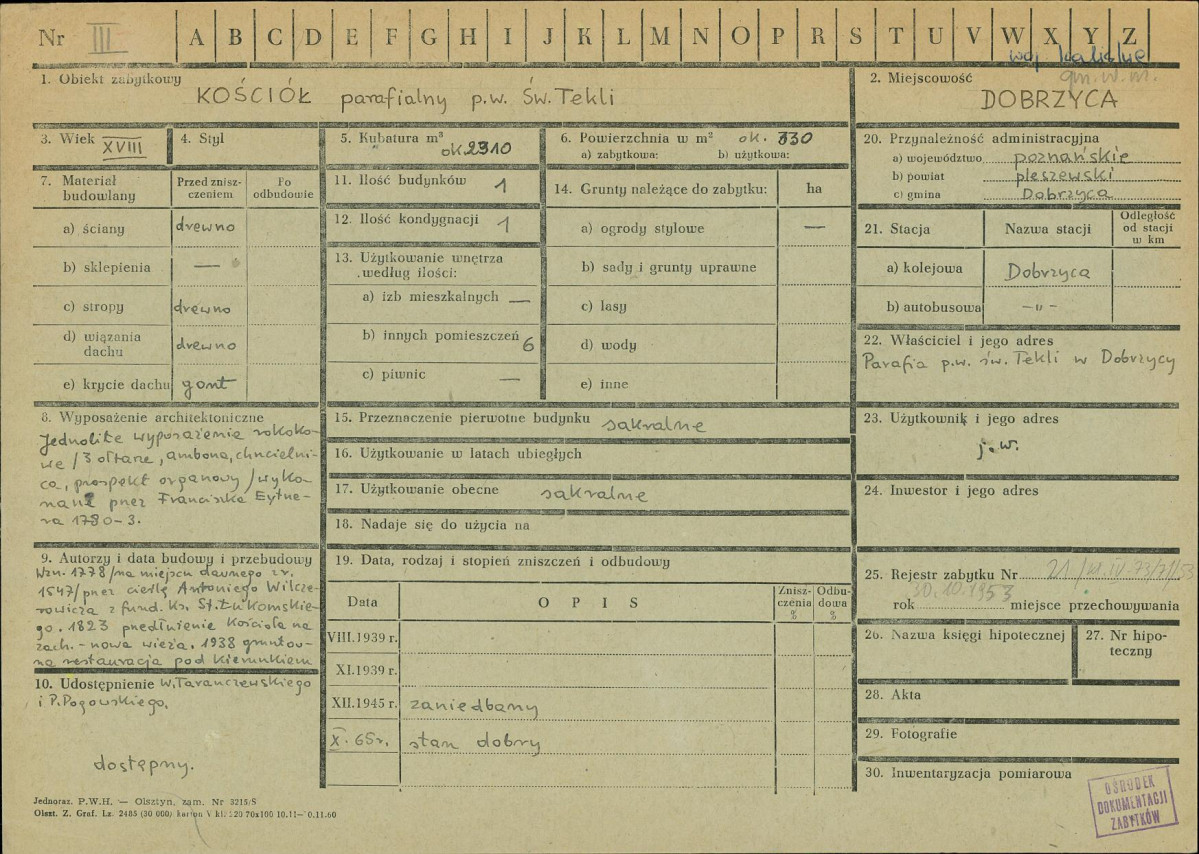 Nr III A B C D E F G H I J K L M N O P R S T U V W X Y Z
woj. kaliskie
gm. w. m.
1. Obiekt zabytkowy
KOŚCIÓŁ parafialny p.w. Św. Tekli
2. Miejscowość
DOBRZYCA
3. Wiek XVIII
4. Styl
5. Kubatura m³
ok. 2310
6. Powierzchnia w m² ok. 330
a) zabytkowa: b) użytkowa:
7. Materiał budowlany
Przed znisz-
czeniem
Po
odbudowie
a) ściany drewno
b) sklepienia —
c) stropy drewno
d) wiązania
dachu drewno
e) krycie dachu gont
8. Wyposażenie architektoniczne
Jednolite wyposażenie rokoko-
we /3 ołtarze, ambona, chrzcielni-
ca, prospekt organowy/ wyko-
nane przez Franciszka Eytne-
ra 1780-3.
9. Autorzy i data budowy i przebudowy
Wzn. 1778 /na miejscu dawnego z r.
1547/ przez cieślę Antoniego Wilcze-
rowicza z fund. Ks. St. Łukomskie-
go. 1823 przedłużenie kościoła na
zach. - nowa wieża. 1938 gruntow-
na restauracja pod kierunkiem
10. Udostępnienie W. Taranczewskiego
i P. Pogowskiego.
dostępny.
11. Ilość budynków 1
12. Ilość kondygnacji 1
13. Użytkowanie wnętrza
według ilości:
a) izb mieszkalnych —
b) innych pomieszczeń 6
c) piwnic —
14. Grunty należące do zabytku: ha
a) ogrody stylowe —
b) sady i grunty uprawne
c) lasy
d) wody
e) inne
15. Przeznaczenie pierwotne budynku sakralne
16. Użytkowanie w latach ubiegłych
17. Użytkowanie obecne sakralne
18. Nadaje się do użycia na
19. Data, rodzaj i stopień zniszczeń i odbudowy
Data
OPIS
Znisz-
czenia
%
Odbu-
dowa
%
VIII.1939 r.
XI.1939 r.
XII.1945 r. zaniedbany
X. 65r. stan dobry
20. Przynależność administracyjna
a) województwo poznańskie
b) powiat pleszewski
c) gmina Dobrzyca
21. Stacja
Nazwa stacji
Odległość
od stacji
w km
a) kolejowa Dobrzyca
b) autobusowa -„-
22. Właściciel i jego adres
Parafia p.w. św. Tekli w Dobrzycy
23. Użytkownik i jego adres
j.w.
24. Inwestor i jego adres
25. Rejestr zabytku Nr
30.10.1953
rok miejsce przechowywania
26. Nazwa księgi hipotecznej
27. Nr hipo-
teczny
28. Akta
29. Fotografie
30. Inwentaryzacja pomiarowa
OŚRODEK
DOKUMENTACJI
ZABYTKÓW
Jednoraz. P.W.H. — Olsztyn, zam. Nr 3215/S
Olszt. Z. Graf. Lz. 2485 (30 000) karton V kl. 220 70x100 10.11—10.11.60